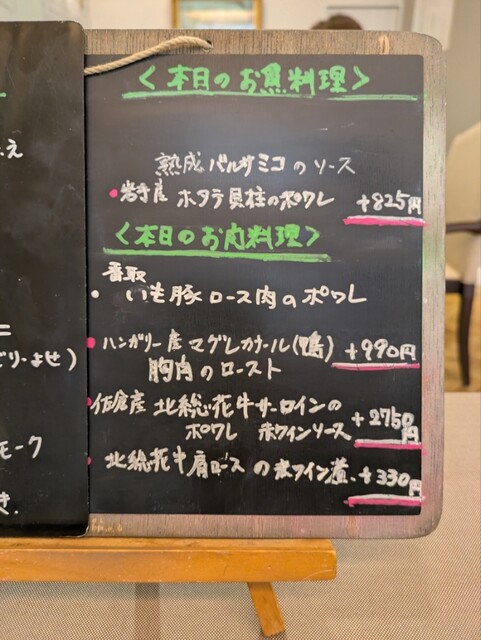 え
ニ
どりーよせ)
モーク
き.
<本日のお魚料理>
熟成バルサミコのソース
・岩手産 ホタテ貝柱のポワレ +825円
<本日のお肉料理>
香取
・いも豚ロース肉のポワレ
・ハンガリー産マグレカナール(鴨) +990円
胸肉のロースト
・佐倉産 北総花牛サーロインの +2750円
ポワレ 赤ワインソース
・北総花牛肩ロースの赤ワイン煮. +330円